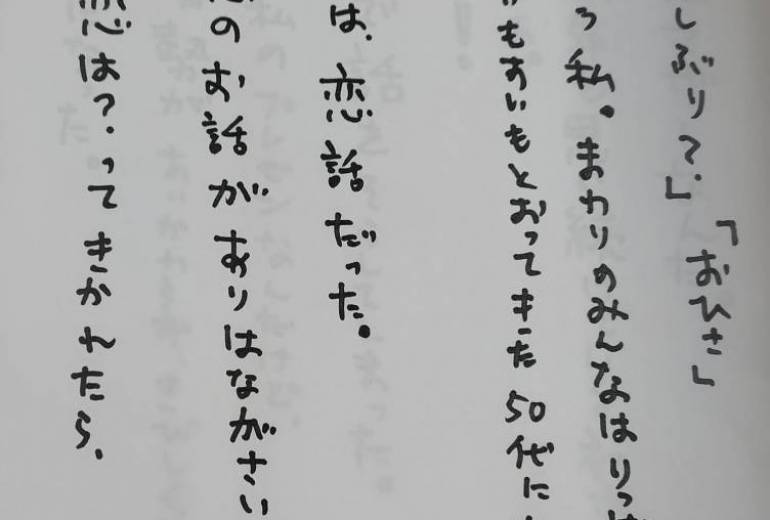 しぶり?」「おひさ」
私。まわりのみんなはりっ
もすいもとおってきた50代に
は、恋話だった。
のお話がありはながさい
恋は?ってきかれたら、